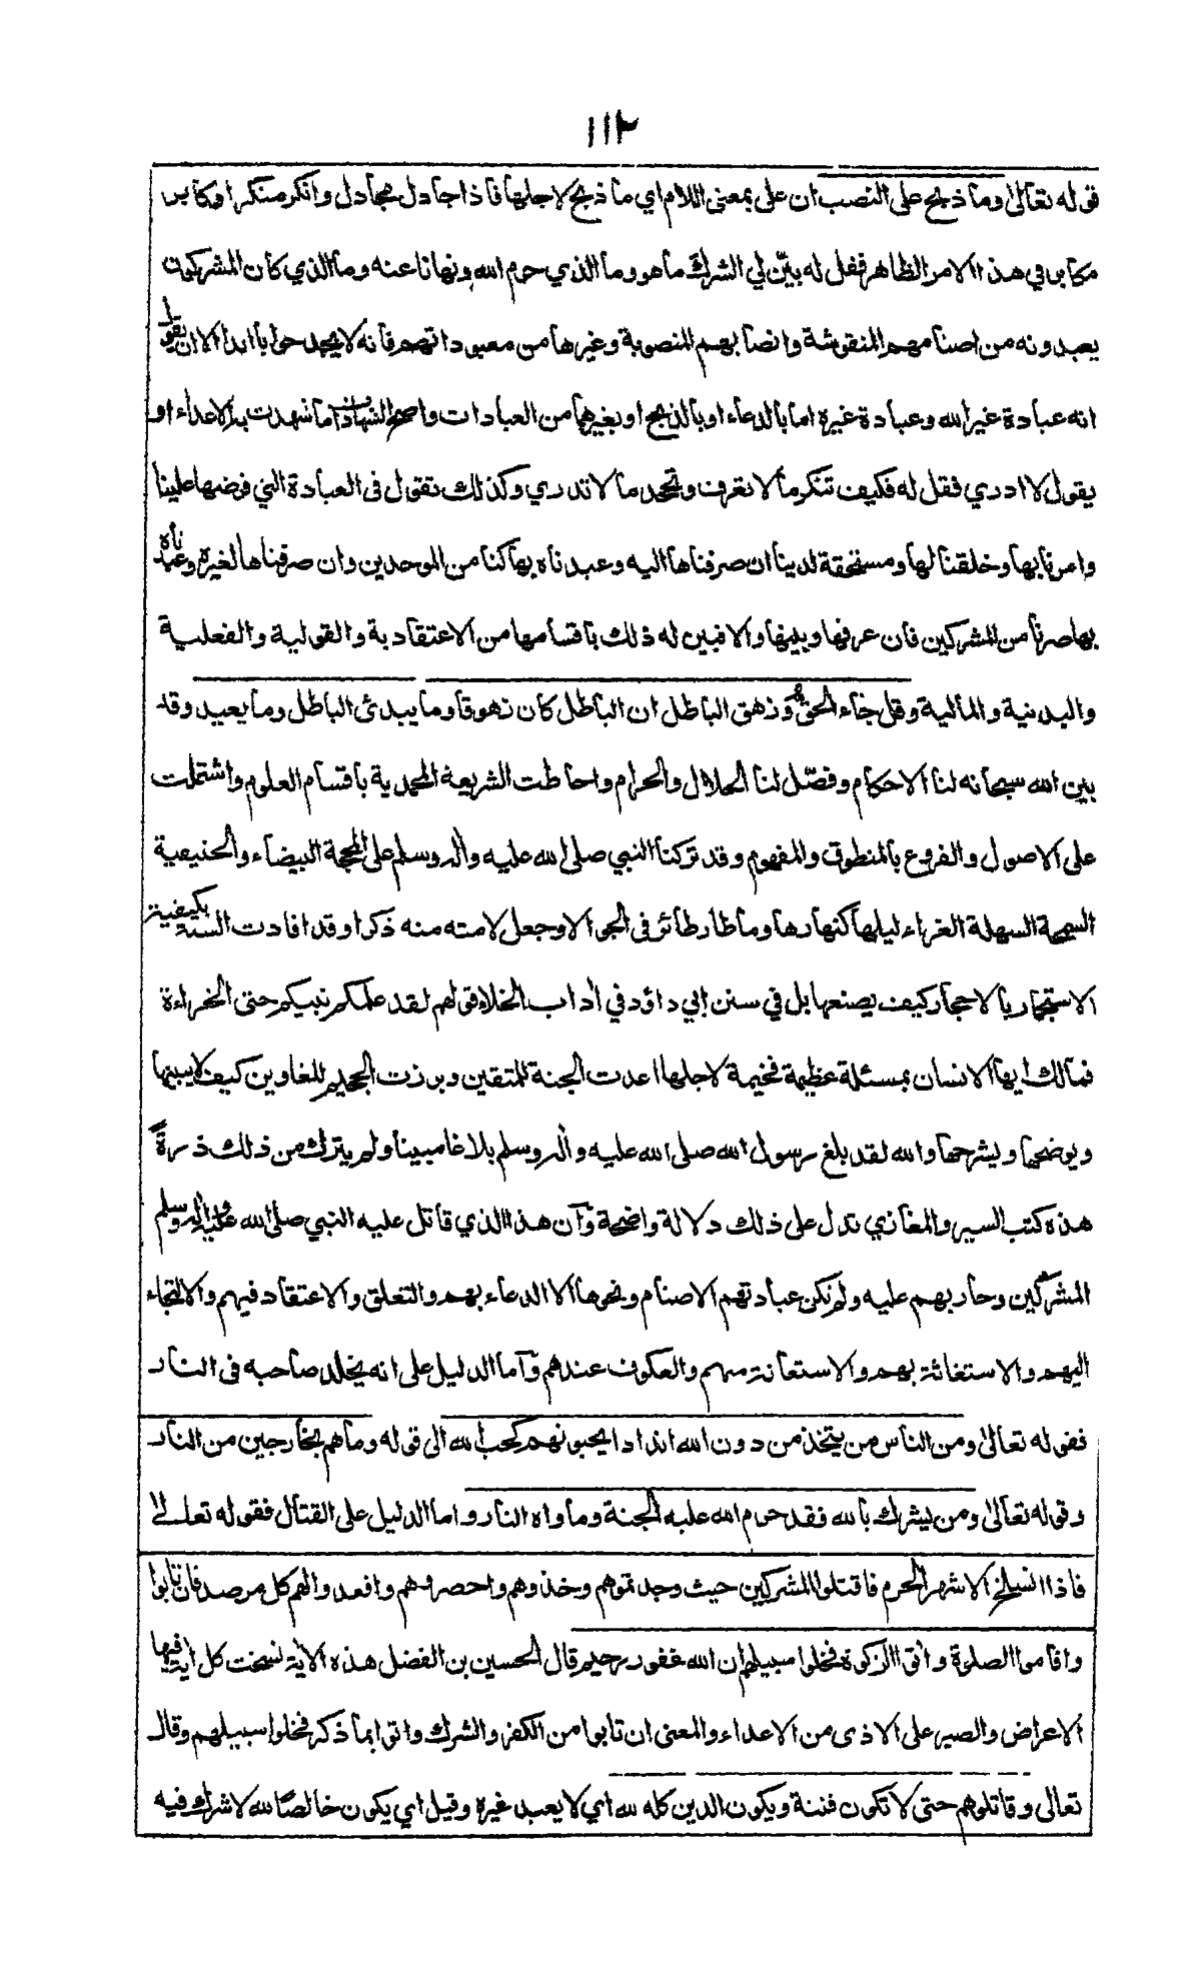 ١١٢
قوله تعالى وما ذبح على النصب ان على بمعنى اللام اي ما ذبح لاجلها فاذا جادل مجادل وانكر منكر او كابر
مكابر في هذا الامر الظاهر فقل له بيّن لي الشرك ما هو وما الذي حرم الله ونهانا عنه وما الذي كان المشركون
يعبدونه من اصنامهم المنقوشة وانصابهم المنصوبة وغيرها من معبوداتهم فانه لا يجد جوابا ابدا الا ان يقول
انه عبادة غير الله وعبادة غيره اما بالدعاء او بالذبح او بغيرهما من العبادات واصح الشهادات ما شهدت به الاعداء او
يقول لا ادري فقل له فكيف تنكر ما لا تعرف وتجحد ما لا تدري وكذلك نقول في العبادة التي فرضها علينا
وامرنا بها وخلقنا لها ومستحقة لدينا ان صرفناها اليه وعبدناه بها كنا من الموحدين وان صرفناها لغيره وعبدناه
بها صرنا من المشركين فان عرفها وبينها والا فبين له ذلك باقسامها من الاعتقادية والقولية والفعلية
والبدنية والمالية وقل جاء الحق وزهق الباطل ان الباطل كان زهوقا وما يبدئ الباطل وما يعيد وقد
بين الله سبحانه لنا الاحكام وفصّل لنا الحلال والحرام واحاطت الشريعة المحمدية باقسام العلوم واشتملت
على الاصول والفروع بالمنطوق والمفهوم وقد تركنا النبي صلى الله عليه واله وسلم على المحجة البيضاء والحنيفية
السمحة السهلة الغراء ليلها كنهارها وما طار طائر في الجو الا وجعل لامته منه ذكرا وقد افادت السنة بكيفية
الاستجمار بالاحجار كيف يصنعها بل في سنن ابي داؤد في اداب الخلاء قولهم لقد علمكم نبيكم حتى الخراءة
فمالك ايها الانسان بمسئلة عظيمة فخيمة لاجلها اعدت الجنة للمتقين وبرزت الجحيم للغاوين كيف لا يبينها
ويوضحها ويشرحها والله لقد بلغ رسول الله صلى الله عليه واله وسلم بلاغا مبينا ولم يترك من ذلك ذرةً
هذه كتب السير والمغازي تدل على ذلك دلالة واضحة وآن هذا الذي قاتل عليه النبي صلى الله عليه واله وسلم
المشركين وحاربهم عليه ولم تكن عبادتهم الاصنام ونحوها الا الدعاء بهم والتعلق والاعتقاد فيهم والالتجاء
اليهم والاستغاثة بهم والاستعانة منهم والعكوف عندهم وآما الدليل على انه يخلد صاحبه في النار
فقوله تعالى ومن الناس من يتخذ من دون الله اندادا يحبونهم كحب الله الى قوله وما هم بخارجين من النار
وقوله تعالى ومن يشرك بالله فقد حرم الله عليه الجنة وماواه النار واما الدليل على القتال فقوله تعالى
فاذا انسلخ الاشهر الحرم فاقتلوا المشركين حيث وجدتموهم وخذوهم واحصروهم واقعدوا لهم كل مرصد فان تابوا
واقاموا الصلوة واتوا الزكوة فخلوا سبيلهم ان الله غفور رحيم قال الحسين بن الفضل هذه الاية نسخت كل اية فيها
الاعراض والصبر على الاذى من الاعداء والمعنى ان تابوا من الكفر والشرك واتوا بما ذكر فخلوا سبيلهم وقال
تعالى وقاتلوهم حتى لا تكون فتنة ويكون الدين كله لله اي لا يعبد غيره وقيل اي يكون خالصًا لله لا شرك فيه